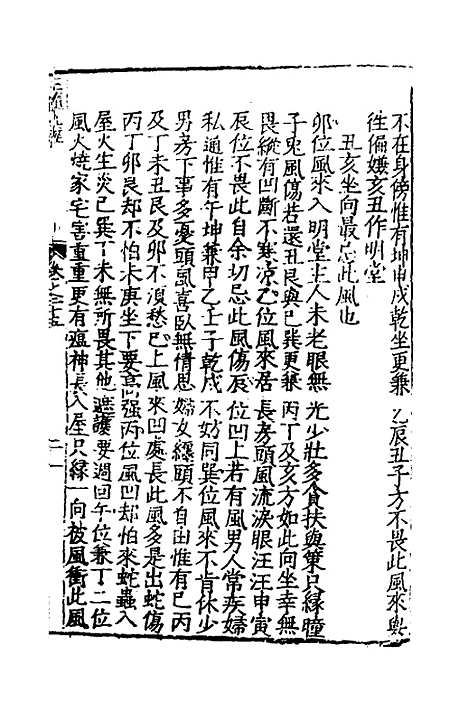 不在身傍惟有坤申戌乾坐更兼 乙辰丑子方不畏此風來與
往偏嫌亥丑作明堂
丑亥坐向最忌此風也
卯位風來入明堂主人未老眼無 光少壯多食扶與策只緣瞳
子兎風傷若還丑艮與巳巽更兼 丙丁及亥方如此向坐幸無
畏縱有凹斷不寒凉乙位風來居 長房頭風流淚眼汪汪申寅
辰位不畏此自余切忌此風傷辰 位凹上若有風男人常疾婦
私通惟有午坤兼甲乙壬子乾戌 不妨同巽位風來不肯休少
男房下事多憂頭風喜臥無情思 婦女纏頸不自由惟有巳丙
及丁未丑艮及卯不須愁巳上風 來凹處長此風多是出蛇傷
丙丁卯艮却不怕未庚坐下要高 强丙位風凹却怕來蛇蟲入
屋火生炎巳巽丁未無所畏其他 遮護要週回午位兼丁二位
風火燒家宅害重重更有瘟神長 入屋只緣一向被風衝此風
卷之三十五